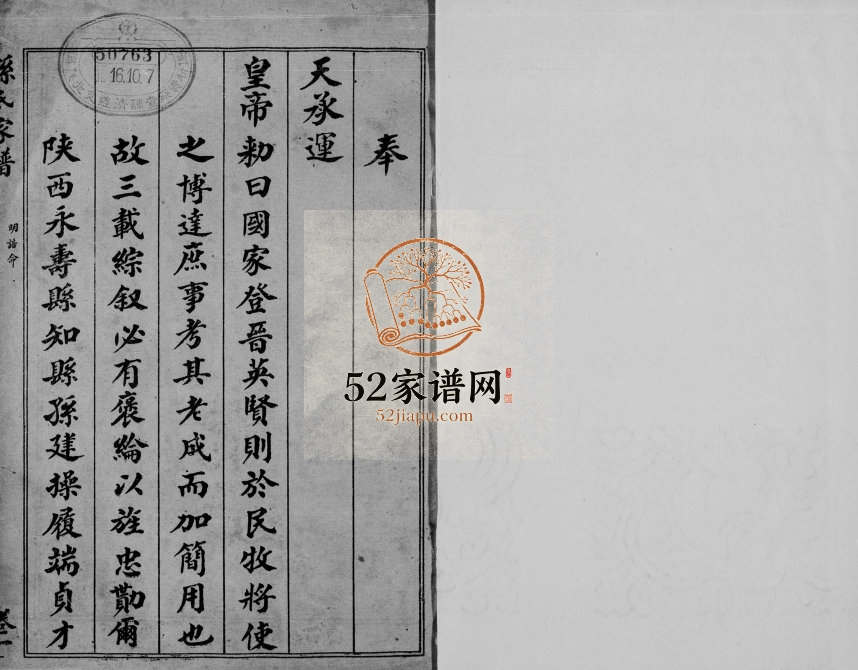 奉
天承運
皇帝勑曰國家登晉英賢則於民牧將使
之博達庶事考其老成而加簡用也
故三載綜叙必有褒綸以旌忠勤爾
陝西永壽縣知縣孫建操履端貞才
孫氏家譜
明誥命
卷一
50763
16.10.7
52家谱网
52jiapu.com